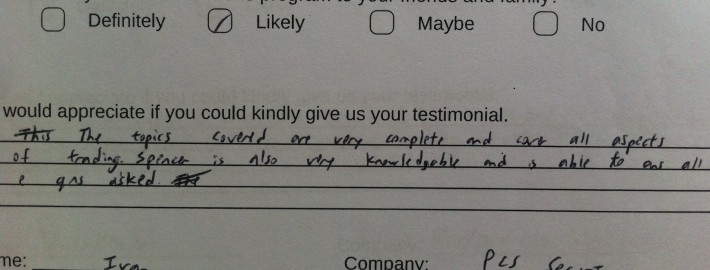 program to your friends and family?
Definitely Likely Maybe No
would appreciate if you could kindly give us your testimonial.
This The topics covered are very complete and all aspects
of trading. Spencer is also very knowledgable and is able to ans all
e qns asked.
me: Ivan Company: PCS